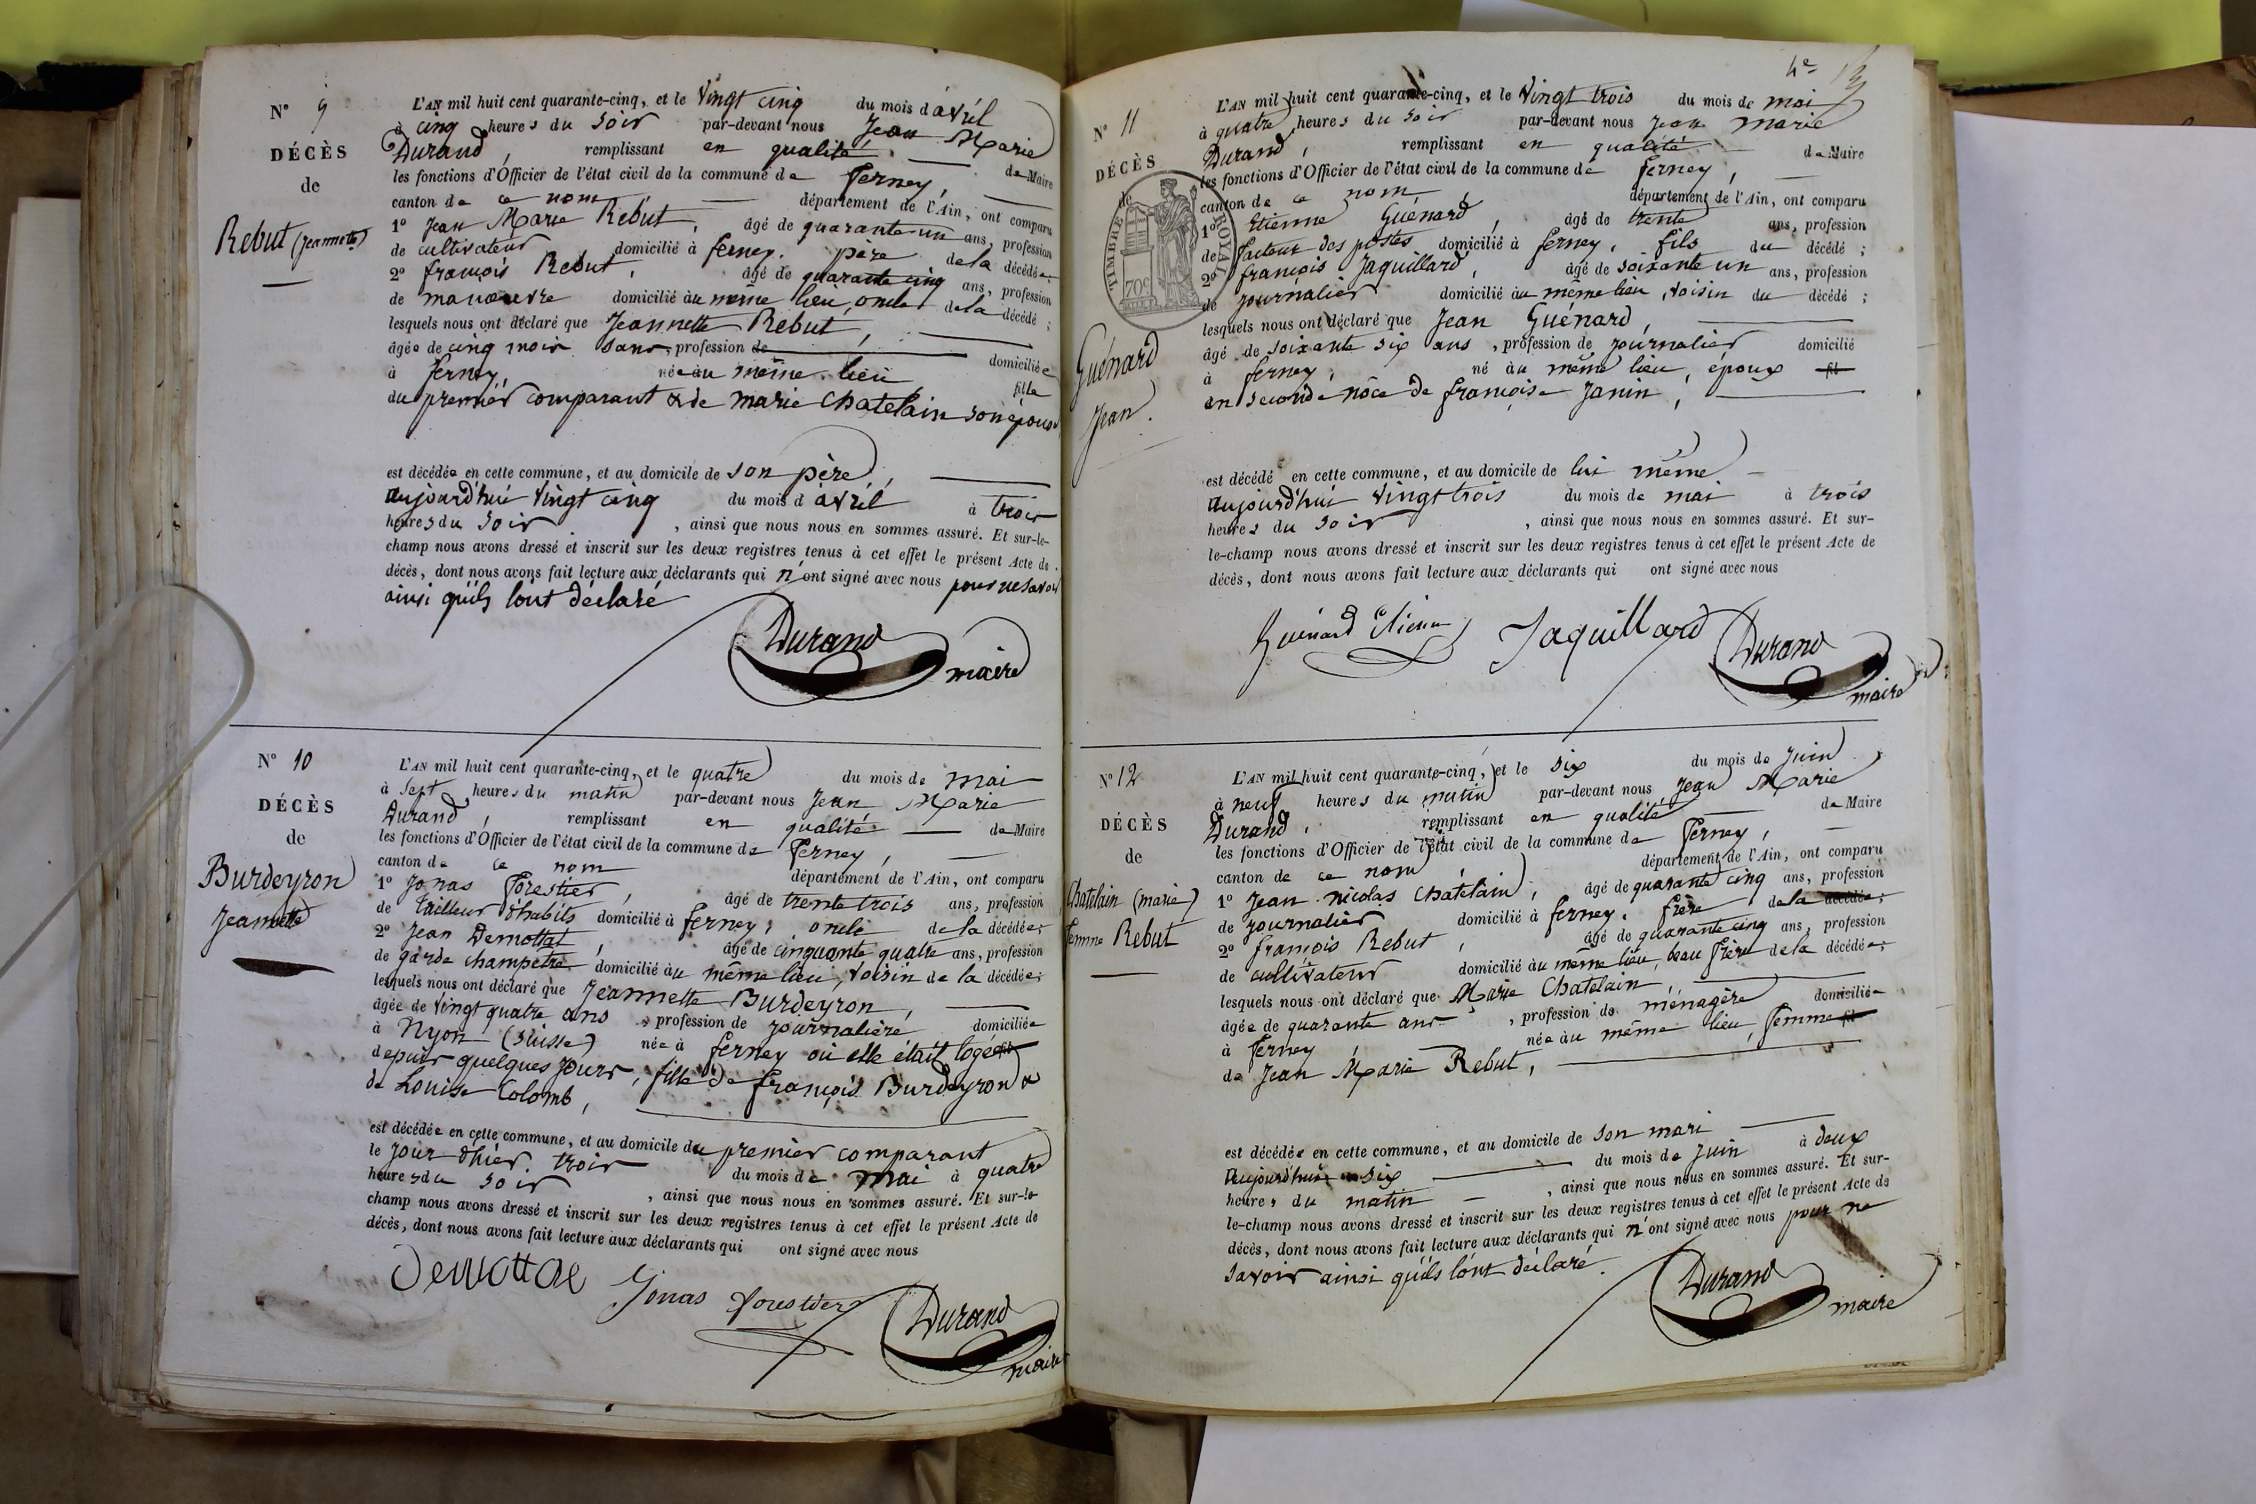 N° 9
DÉCÈS
de
Rebut (Jeannette)
L'AN mil huit cent quarante-cinq, et le Vingt cinq du mois d'avril
à cinq heures du soir par-devant nous Jean Marie
Durand, remplissant en qualité de Maire
les fonctions d'Officier de l'état civil de la commune de ferney,
canton de ce nom, département de l'Ain, ont comparu
1° Jean Marie Rebut, âgé de quarante un ans, profession
de cultivateur domicilié à ferney. père de la décédée;
2° françois Rebut, âgé de quarante cinq ans, profession
de manoeuvre domicilié au même lieu, oncle de la décédé;
lesquels nous ont déclaré que Jeannette Rebut,
âgée de cinq mois sans, profession de domiciliée
à ferney, née au même lieu fille
du premier comparant & de marie Chatelain son épouse
est décédée en cette commune, et au domicile de son père,
aujourd'hui vingt cinq du mois d'avril à trois
heures du soir, ainsi que nous nous en sommes assuré. Et sur-le-
champ nous avons dressé et inscrit sur les deux registres tenus à cet effet le présent Acte de
décès, dont nous avons fait lecture aux déclarants qui n'ont signé avec nous pour ne savoir
ainsi qu'ils l'ont déclaré
Durand
maire
N° 10
DÉCÈS
de
Burdeyron
Jeannette
L'AN mil huit cent quarante-cinq, et le quatre du mois de mai
à sept heures du matin par-devant nous Jean Marie
Durand, remplissant en qualité de Maire
les fonctions d'Officier de l'état civil de la commune de ferney,
canton de ce nom département de l'Ain, ont comparu
1° Jonas Forestier, âgé de trente trois ans, profession
de tailleur d'habits domicilié à ferney, oncle de la décédée;
2° Jean Demottaz, âgé de cinquante quatre ans, profession
de garde champetre domicilié au même lieu, voisin de la décédée;
lesquels nous ont déclaré que Jeannette Burdeyron,
âgée de vingt quatre ans, profession de journalière domiciliée
à Nyon (suisse) née à ferney où elle était logée fil
depuis quelques jours, fille de françois Burdeyron &
de Louise Colomb,
est décédée en cette commune, et au domicile du premier comparant
le jour d'hier. trois du mois de mai à quatre
heures du soir, ainsi que nous nous en sommes assuré. Et sur-le-
champ nous avons dressé et inscrit sur les deux registres tenus à cet effet le présent Acte de
décès, dont nous avons fait lecture aux déclarants qui ont signé avec nous
Demottaz Jonas forestier Durand
maire
4e
N° 11
DÉCÈS
de
TIMBRE ROYAL
70c
Guénard
Jean.
L'AN mil huit cent quarante-cinq, et le Vingt trois du mois de mai
à quatre heures du soir par-devant nous Jean marie
Durand, remplissant en qualité de Maire
les fonctions d'Officier de l'état civil de la commune de ferney,
canton de ce nom, département de l'Ain, ont comparu
1° Etienne Guénard, âgé de trente ans, profession
de facteur des postes domicilié à ferney, fils du décédé;
2° françois Jaquillard, âgé de soixante un ans, profession
de journalier domicilié au même lieu, voisin du décédé;
lesquels nous ont déclaré que Jean Guénard,
âgé de soixante six ans, profession de journalier domicilié
à ferney, né au même lieu, époux fil
en seconde nôce de françoise Janin,
est décédé en cette commune, et au domicile de lui même
aujourd'hui vingt trois du mois de mai à trois
heures du soir, ainsi que nous nous en sommes assuré. Et sur-
le-champ nous avons dressé et inscrit sur les deux registres tenus à cet effet le présent Acte de
décès, dont nous avons fait lecture aux déclarants qui ont signé avec nous
Guénard Etienne Jaquillard Durand
maire
N° 12
DÉCÈS
de
Chatelain (marie)
femme Rebut
L'AN mil huit cent quarante-cinq, et le six du mois de juin
à neuf heures du matin par-devant nous Jean Marie
Durand, remplissant en qualité de Maire
les fonctions d'Officier de l'état civil de la commune de ferney,
canton de ce nom, département de l'Ain, ont comparu
1° Jean nicolas Chatelain, âgé de quarante cinq ans, profession
de journalier domicilié à ferney. frère de la décédée;
2° françois Rebut, âgé de quarante cinq ans, profession
de cultivateur domicilié au même lieu, beau frère de la décédée;
lesquels nous ont déclaré que Marie Chatelain,
âgée de quarante ans, profession de ménagère domiciliée
à ferney, née au même lieu, femme fil
de Jean Marie Rebut,
est décédée en cette commune, et au domicile de son mari
aujourd'hui six du mois de juin à deux
heures du matin, ainsi que nous nous en sommes assuré. Et sur-
le-champ nous avons dressé et inscrit sur les deux registres tenus à cet effet le présent Acte de
décès, dont nous avons fait lecture aux déclarants qui n'ont signé avec nous pour ne
savoir ainsi qu'ils l'ont déclaré.
Durand
maire